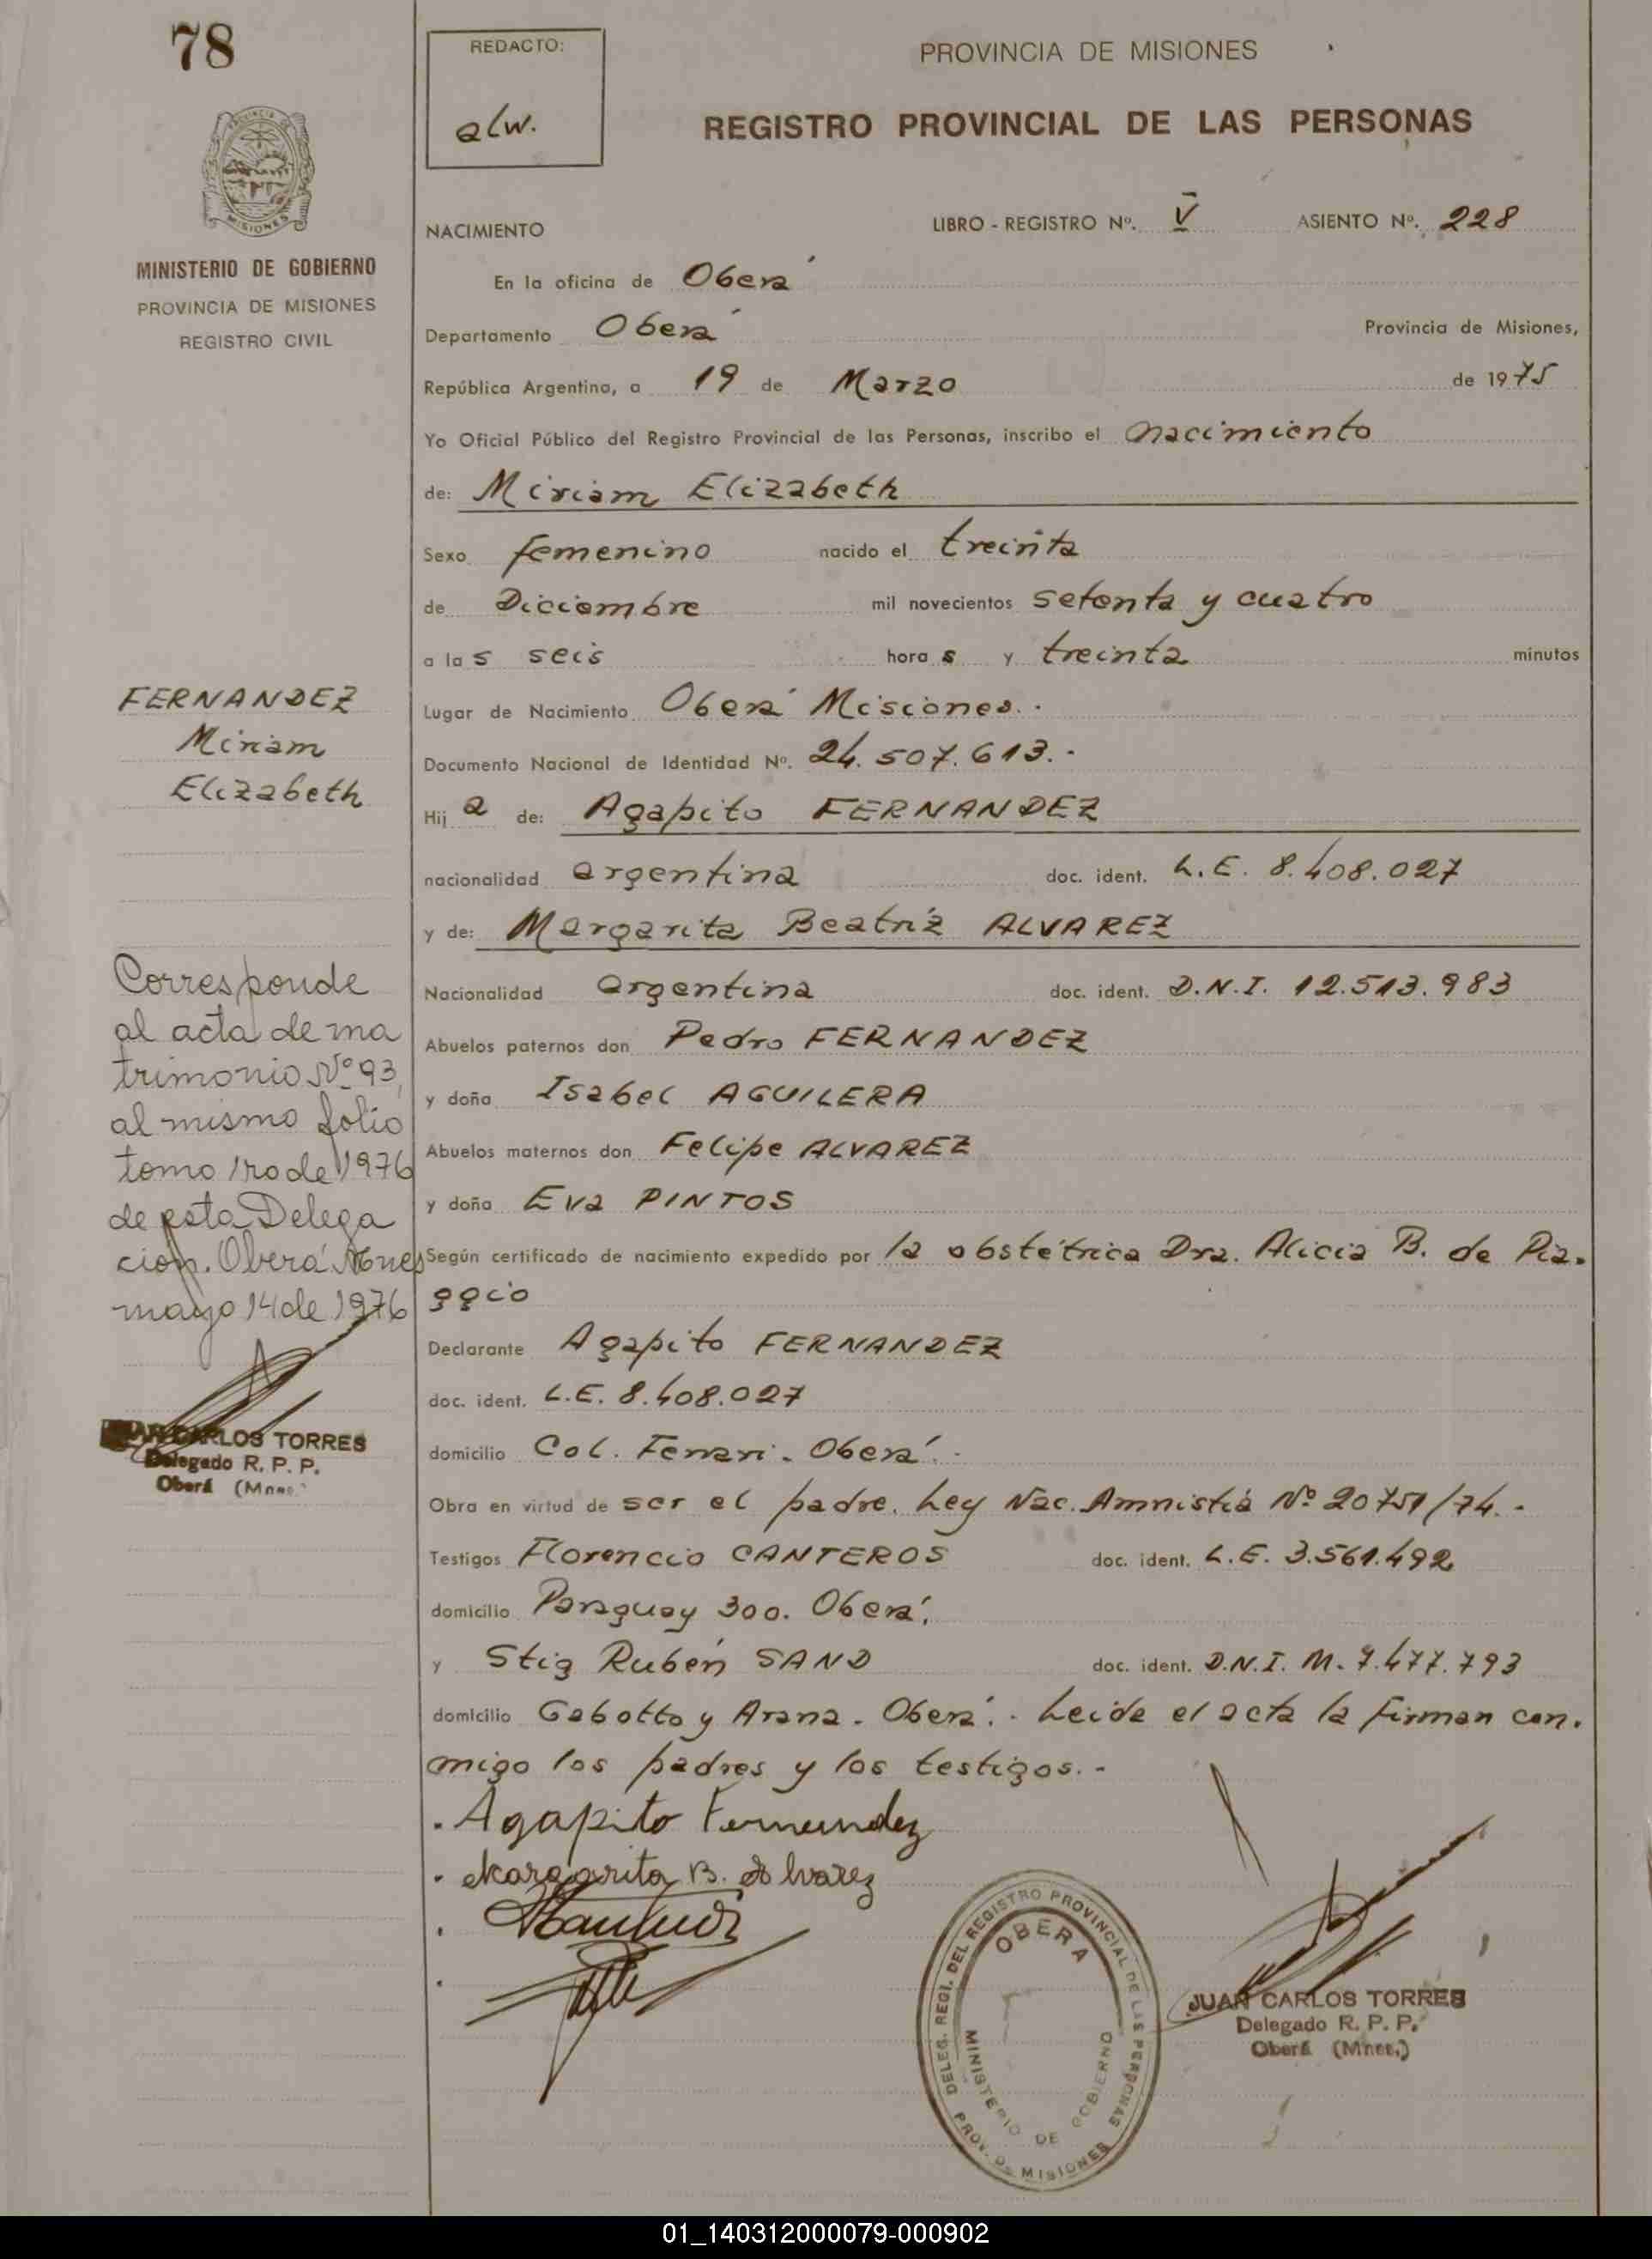 78
REDACTO:
alw.
PROVINCIA DE MISIONES
REGISTRO PROVINCIAL DE LAS PERSONAS
MISIONES
MINISTERIO DE GOBIERNO
PROVINCIA DE MISIONES
REGISTRO CIVIL
NACIMIENTO LIBRO - REGISTRO Nº. V ASIENTO Nº. 228
En la oficina de Oberá
Departamento Oberá Provincia de Misiones,
República Argentina, a 19 de Marzo de 1975
Yo Oficial Público del Registro Provincial de las Personas, inscribo el nacimiento
de: Miriam Elizabeth
Sexo femenino nacido el treinta
de Diciembre mil novecientos setenta y cuatro
a las seis horas y treinta minutos
Lugar de Nacimiento Oberá Misiones.-
Documento Nacional de Identidad Nº. 24.507.613.-
Hija de: Agapito FERNANDEZ
nacionalidad argentina doc. ident. L.E. 8.408.027
y de: Margarita Beatríz ALVAREZ
Nacionalidad argentina doc. ident. D.N.I. 12.513.983
Abuelos paternos don Pedro FERNANDEZ
y doña Isabel AGUILERA
Abuelos maternos don Felipe ALVAREZ
y doña Eva PINTOS
Según certificado de nacimiento expedido por la obstétrica Dra. Alicia B. de Pia-
ggio
Declarante Agapito FERNANDEZ
doc. ident. L.E. 8.408.027
domicilio Col. Ferrari - Oberá.-
Obra en virtud de ser el padre. Ley Nac. Amnistía Nº 20751/74.-
Testigos Florencio CANTEROS doc. ident. L.E. 3.561.492
domicilio Paraguay 300. Oberá.
y Stig Rubén SAND doc. ident. D.N.I. M. 7.477.793
domicilio Gabotto y Arana - Oberá.- Leída el acta la firman con-
migo los padres y los testigos.-
Agapito Fernandez
Margarita B. Alvarez
FERNANDEZ
Miriam
Elizabeth
Corresponde
al acta de ma
trimonio Nº 93,
al mismo folio
tomo 1ro de 1976
de esta Delega
ción. Oberá Mnes
mayo 14 de 1976
JUAN CARLOS TORRES
Delegado R. P. P.
Oberá (Mnes.)
DELEG. REGI. DEL REGISTRO PROVINCIAL DE LAS PERSONAS
OBERA
MINISTERIO DE GOBIERNO
PROV. DE MISIONES
JUAN CARLOS TORRES
Delegado R. P. P.
Oberá (Mnes.)
01_140312000079-000902